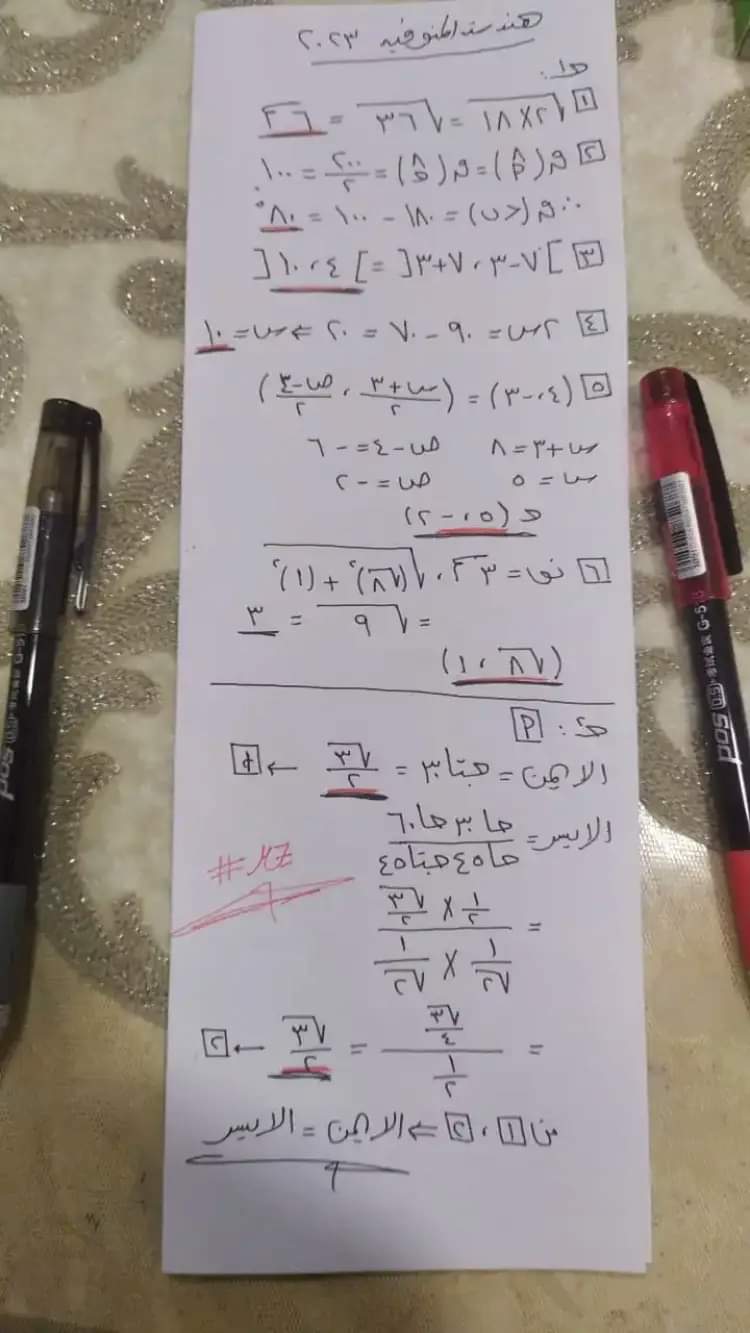 هندسة المنوفيه ٢٠٢٣
حـ١:
[١] √(٢×١٨) = √٣٦ = ٦ سم
[٢] ق(∠أ) = ق(∠حـ) = ٢٠٠/٢ = ١٠٠°
∴ ق(∠ب) = ١٨٠ − ١٠٠ = ٨٠°
[٣] ]٧−٣ ، ٧+٣[ = ]٤ ، ١٠[
[٤] ٢س = ٩٠ − ٧٠ = ٢٠ ⇐ س = ١٠
[٥] (٤ ، −٣) = ((س+٣)/٢ ، (ص−٤)/٢)
س+٣ = ٨ ص−٤ = −٦
س = ٥ ص = −٢
حـ (٥ ، −٢)
[٦] نق = ٣ سم ، √((√٨)² + (١)²)
= √٩ = ٣
(√٨ ، ١)
حـ٢: [أ]
الايمن = جتا٣٠ = √٣/٢ ← [١]
الايسر = (حا٣٠ حا٦٠)/(حا٤٥ جتا٤٥)
= (١/٢ × √٣/٢)/(١/√٢ × ١/√٢)
= (√٣/٤)/(١/٢) = √٣/٢ ← [٢]
من [١] ، [٢] ⇐ الايمن = الايسر
Sod
G-5
Sod
G-5